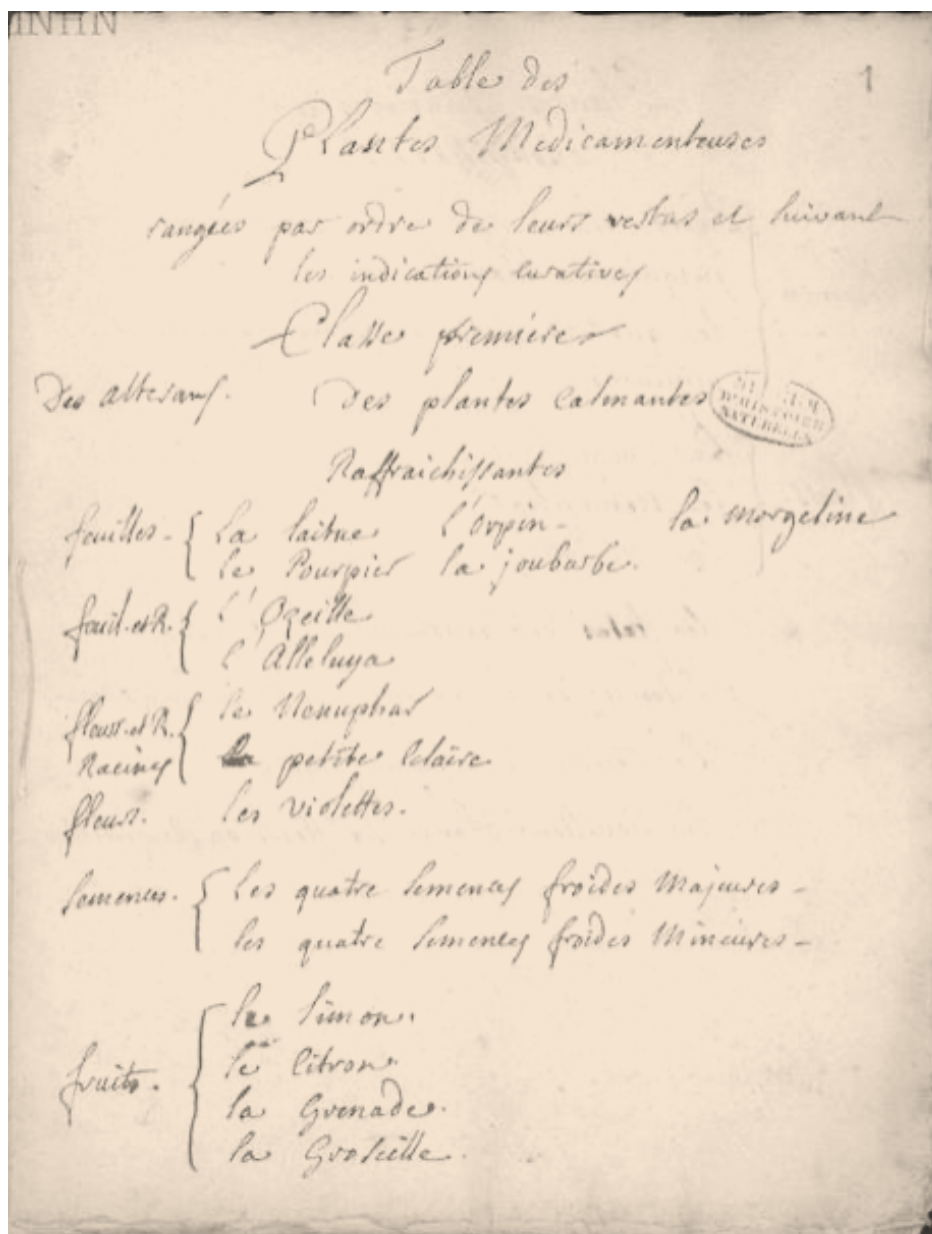 MNHN
1
Table des
Plantes Medicamenteuses
rangées par ordre de leurs vertus et suivant
les indications curatives
Classe premiere
Des alterans. des plantes calmantes
D'HISTOIRE
NATURELLE
Raffraichissantes
feuilles - La laitue l'orpin - la morgeline
le Pourpier la joubarbe.
feuil. et R. l'Ozeille
l'Alleluya
fleurs. et R. le Nenuphar
Racines la petite Eclaire
fleurs. les violettes.
Semences. les quatre semences froides Majeures -
les quatre semences froides Mineures -
le limon.
fruits. le Citron
la Grenade.
la Groseille.